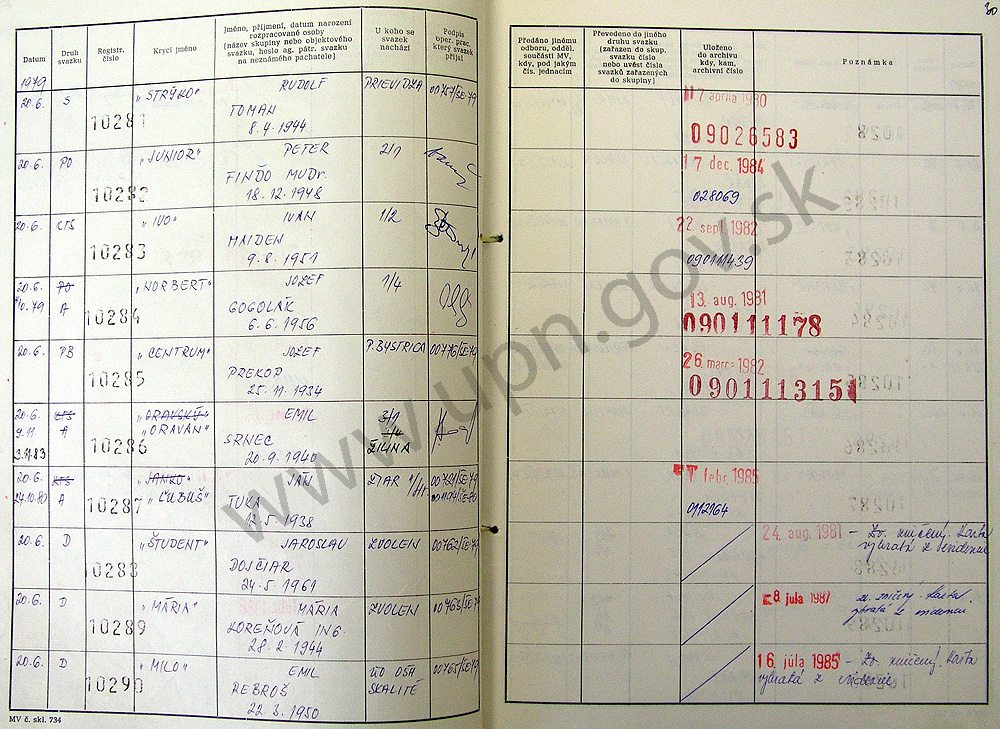 30
Datum
Druh svazku
Registr. číslo
Krycí jméno
Jméno, příjmení, datum narození rozpracované osoby (název skupiny nebo objektového svazku, heslo ag. pátr. svazku na neznámého pachatele)
U koho se svazek nachází
Podpis oper. prac. který svazek přijal
Předáno jinému odboru, odděl. součásti MV, kdy, pod jakým čís. jednacím
Převedeno do jiného druhu svazku (zařazen do skup. svazku číslo nebo uvést čísla svazků zařazených do skupiny)
Uloženo do archivu kdy, kam, archivní číslo
Poznámka
1979
20.6. S 10281 "STRÝKO" RUDOLF PRIEVIDZA 00757/SE-79 17 apríla 1980
TOMAN 09026583
8.4.1944
20.6. PO 10282 "JUNIOR" PETER 2/1 17 dec. 1984
FINĎO MUDr. 028069
18.12.1948
20.6. KTS 10283 "IVO" IVAN 1/2 22 sept. 1982
MAIDEN 090111439
9.8.1951
20.6. PO 10284 "NORBERT" JOZEF 1/4 13. aug. 1981
10.79 A GOGOLÁK 090111178
6.6.1956
20.6. PB 10285 "CENTRUM" JOZEF P. BYSTRICA 00776/SE-79 26 marca 1982
PREKOP 0901113151
25.11.1934
20.6. KTS 10286 "ORAVSKÝ" EMIL 3/1
9.11. A "ORAVAN" SRNEC 1/4
83 20.9.1940 ŽILINA
20.6. KTS 10287 "JANKO" JÁN ŽIAR febr. 1985
24.10.80 A "ĽUBUŠ" TUKA 0112164
5.1938
20.6. D 10288 "ŠTUDENT" JAROSLAV ZVOLEN 00762/SE-79 24. aug. 1981 – Zv. zničený. Karta
DOJČIAR vybratá z evidencie
24.5.1961
20.6. D 10289 "MÁRIA" MÁRIA ZVOLEN 00763/SE-79 8 júla 1987 zv. zničený. Karta
KOREŇOVÁ ING. vybratá z evidencie
28.2.1944
20.6. D 10290 "MILO" EMIL OO OSH 00765/SE-79 16. júla 1985 – Zv. zničený. Karta
REBROŠ SKALITÉ vybratá z evidencie
22.3.1950
MV č. skl. 734
www.upn.gov.sk